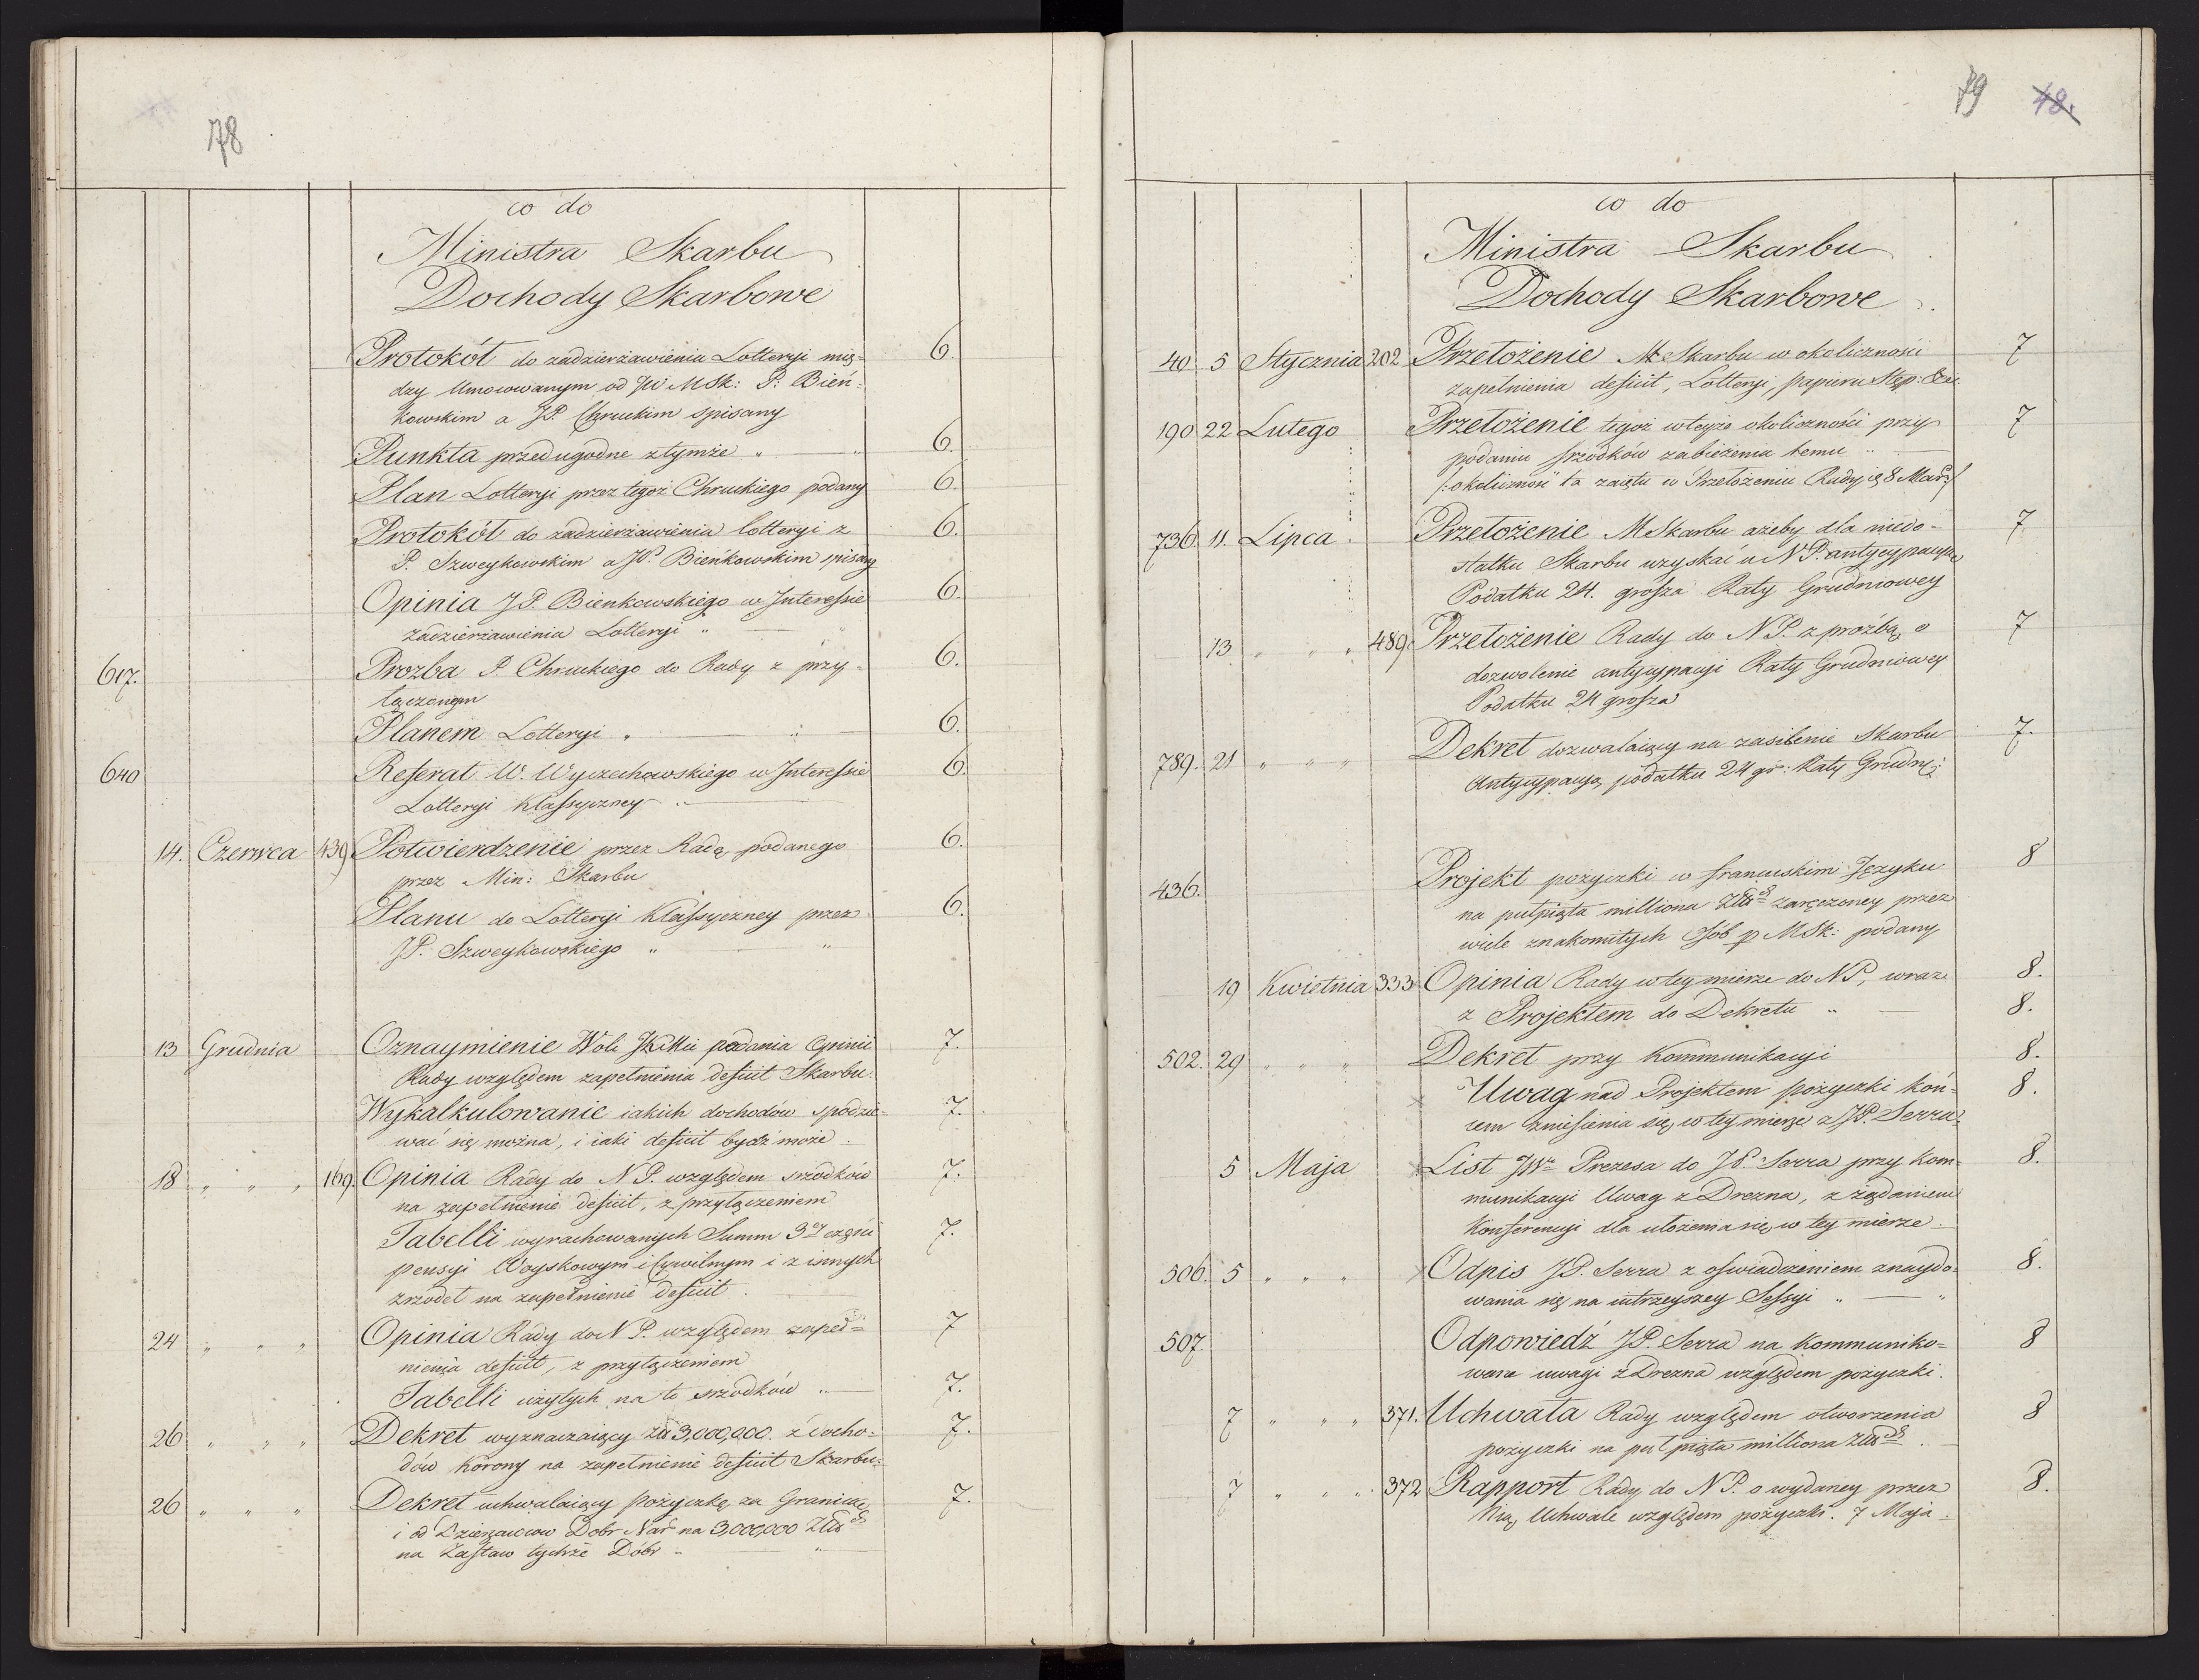 78
co do
Ministra Skarbu
Dochody Skarbowe
Protokół do zadzierżawienia Lotteryi mię= 6.
dzy Umocowanym od JW MSk: P. Bień=
kowskim a JP. Chruckim spisany
Punkta przedugodne z tymże " " 6.
Plan Lotteryi przez tegoż Chruckiego podany 6.
Protokół do zadzierżawienia lotteryi z 6.
P. Szweykowskim a JP. Bieńkowskim spisany
Opinia JP. Bienkowskiego w Interessie 6.
zadzierżawienia Lotteryi " "
617. Prozba P. Chruckiego do Rady z przy= 6.
łączonym
Planem Lotteryi " " 6.
640 Referat W. Wyczechowskiego w Interessie 6.
Lotteryi Klassyczney "
14. Czerwca 439 Potwierdzenie przez Radę podanego 6.
przez Min: Skarbu
Planu do Lotteryi Klassyczney przez 6.
JP. Szweykowskiego " "
13 Grudnia Oznaymienie Woli JKMci podania Opinii 7.
Rady względem zapełnienia deficit Skarbu.
Wykalkulowanie iakich dochodów spodzie= 7.
wać się można, i iaki deficit bydź może.
18 " " " 169. Opinia Rady do N P. względem srzodków 7.
na zapełnienie deficit, z przyłączeniem
Tabelli wyrachowanych Summ 3ey części 7.
pensyi Woyskowym i Cywilnym i z innych
zrzodeł na zupełnienie deficit.
24 " " " Opinia Rady do N P. względem zapeł= 7
nienia deficit, z przyłączeniem
Tabelli użytych na to srzodków " 7.
26 " " " Dekret wyznaczaiący zł 3,000,000. z docho= 7.
dów Korony na zapełnienie deficit Skarbu.
26 " " " Dekret uchwalaiący pożyczkę za Granicą 7.
i od Dzierżawców Dobr Nar na 3,000,000 Złł
na Zastaw tychże Dóbr " "
79 48.
co do
Ministra Skarbu
Dochody Skarbowe
40 5 Stycznia 202 Przełożenie M Skarbu w okoliczności 7
zapełnienia deficit, Lotteryi, papieru Stęp: &c
190 22 Lutego Przełożenie tegoż w teyże okoliczności przy 7
podaniu srzodków zabieżenia temu "
/:okoliczność ta zaięta w Przełożeniu Rady 8 Marca/
736. 11. Lipca Przełożenie M Skarbu ażeby dla niedo= 7
statku Skarbu uzyskać u N P. antycypacyę
Podatku 24. grosza Raty Grudniowey
13 " " " 489 Przełożenie Rady do N P. z prożbą o 7
dozwolenie antycypacyi Raty Grudniowey
Podatku 24 grosza
789. 21 " " " Dekret dozwalaiący na zasilenie Skarbu 7.
Antycypacyą podatku 24 gr: Raty Grudn:
436. Projekt pożyczki w francuskim Języku 8
na pułpięta milliona Złł zaręczoney przez
wiele znakomitych Osób p MSk: podany
19 Kwietnia 333 Opinia Rady w tey mierze do N P, wraz 8.
z Projektem do Dekretu " 8.
502. 29 " " " Dekret przy Kommunikacyi 8.
Uwag nad Projektem pożyczki koń= 8.
cem zniesienia się w tey mierze z JP. Serra
5 Maja List JW Prezesa do JP. Serra przy kom= 8.
munikacyi Uwag z Drezna, z żądaniem
Konferencyi dla ułożenia się w tey mierze.
506. 5 " " " Odpis JP. Serra z oświadczeniem znaydo= 8.
wania się na iutrzeyszey Sessyi " "
507. Odpowiedź JP. Serra na kommuniko= 8
wane uwagi z Drezna względem pożyczki.
7 " " " 371. Uchwała Rady względem otworzenia 8
pożyczki na pułpięta milliona Złł
7 " " " 372 Rapport Rady do N P. o wydaney przez 8.
Nią Uchwale względem pożyczki. 7 Maja.